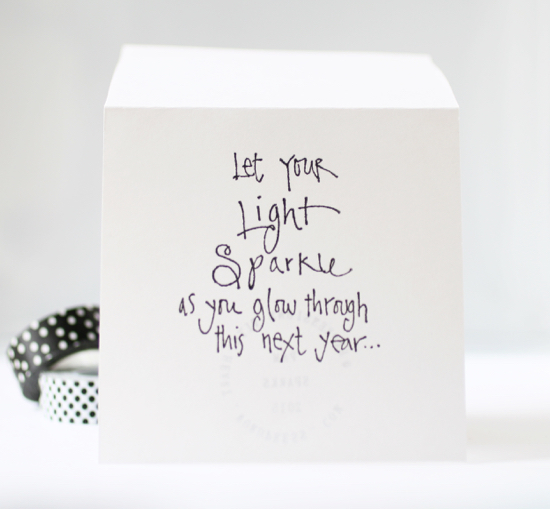 Let your
Light
Sparkle
as you glow through
this next year...